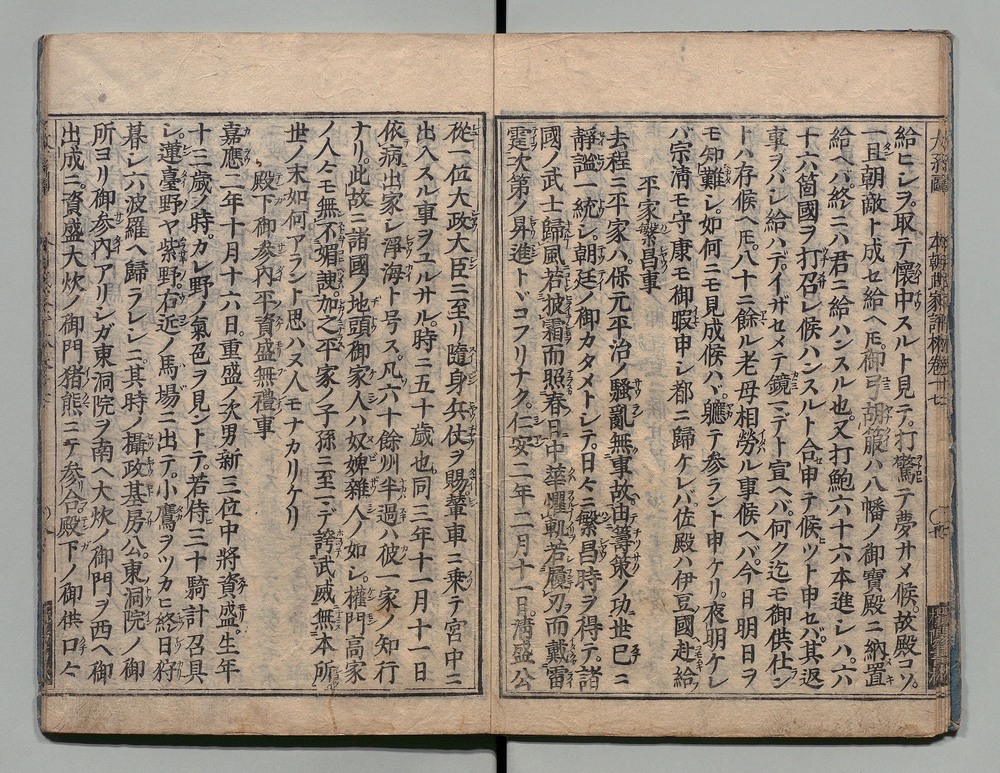 給ヒシヲ取テ懷中スルト見テ打驚テ夢サメ候故殿コソ
一旦朝敵ト成セ給ヘ𪜈御弓胡籙ハ八幡ノ御寶殿ニ納置
給ヘバ終ニハ君ニ給ハンスル也又打鮑六十六本進シハ六
十六箇國ヲ打召レ候ハンスルト合申テ候ツト申セバ其返
事ヲバシ給ハデイザセメテ鏡ミデト宣ヘバ何ク迄モ御供仕ン
トハ存候ヘ𪜈八十ニ餘ル老母相勞ル事候ヘバ今日明日ヲ
モ知難シ如何ニモ見成候ハバ軈テ參ラント申ケリ夜明ケレ
バ宗淸モ守康モ御暇申シ都ニ歸ケレバ佐殿ハ伊豆國ヘ赴給
平家繁昌事
去程ニ平家ハ保元平治ノ騷亂無事故由籌策ノ功世已ニ
靜謐一統シ朝廷ノ御カタメトシテ日々ニ繁昌時ヲ得テ諸
國ノ武士歸風若披霜而照春日中華懼軌若履刃而戴雷
霆次第ノ昇進トドコフリナク仁安二年二月十一日淸盛公
從一位大政大臣ニ至リ隨身兵仗ヲ賜輦車ニ乘テ宮中ニ
出入スル車ヲユルサル時ニ五十歲也同三年十一月十一日
依病出家シ淨海ト号ス凡六十餘州半過ハ彼一家ノ知行
ナリ此故ニ諸國ノ地頭御家人ハ奴婢雜人ノ如シ權門高家
ノ人々モ無不媚諛加之平家ノ子孫ニ至マデ誇武威無本所
世ノ末如何アラント思ハヌ人モナカリケリ
殿下御參內平資盛無禮事
嘉應二年十月十六日重盛ノ次男新三位中將資盛生年
十三歲ノ時カレ野ノ氣色ヲ見ントテ若侍三十騎計召具
シ蓮臺野ヤ紫野右近ノ馬場ニ出テ小鷹ヲツカヒ終日狩
暮シ六波羅ヘ歸ラレシニ其時ノ攝政基房公東洞院ノ御
所ヨリ御參內アリシガ東洞院ヲ南ヘ大炊ノ御門ヲ西ヘ御
出成ニ資盛大炊ノ御門猪熊ニテ參合殿下ノ御供口々